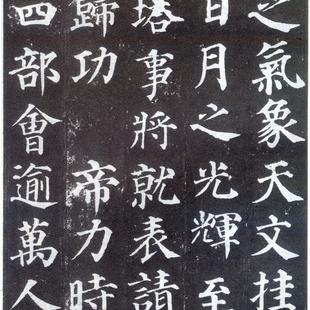 之氣象天文挂
日月之光輝至
塔事將就表請
歸功 帝力時
四部會逾萬人